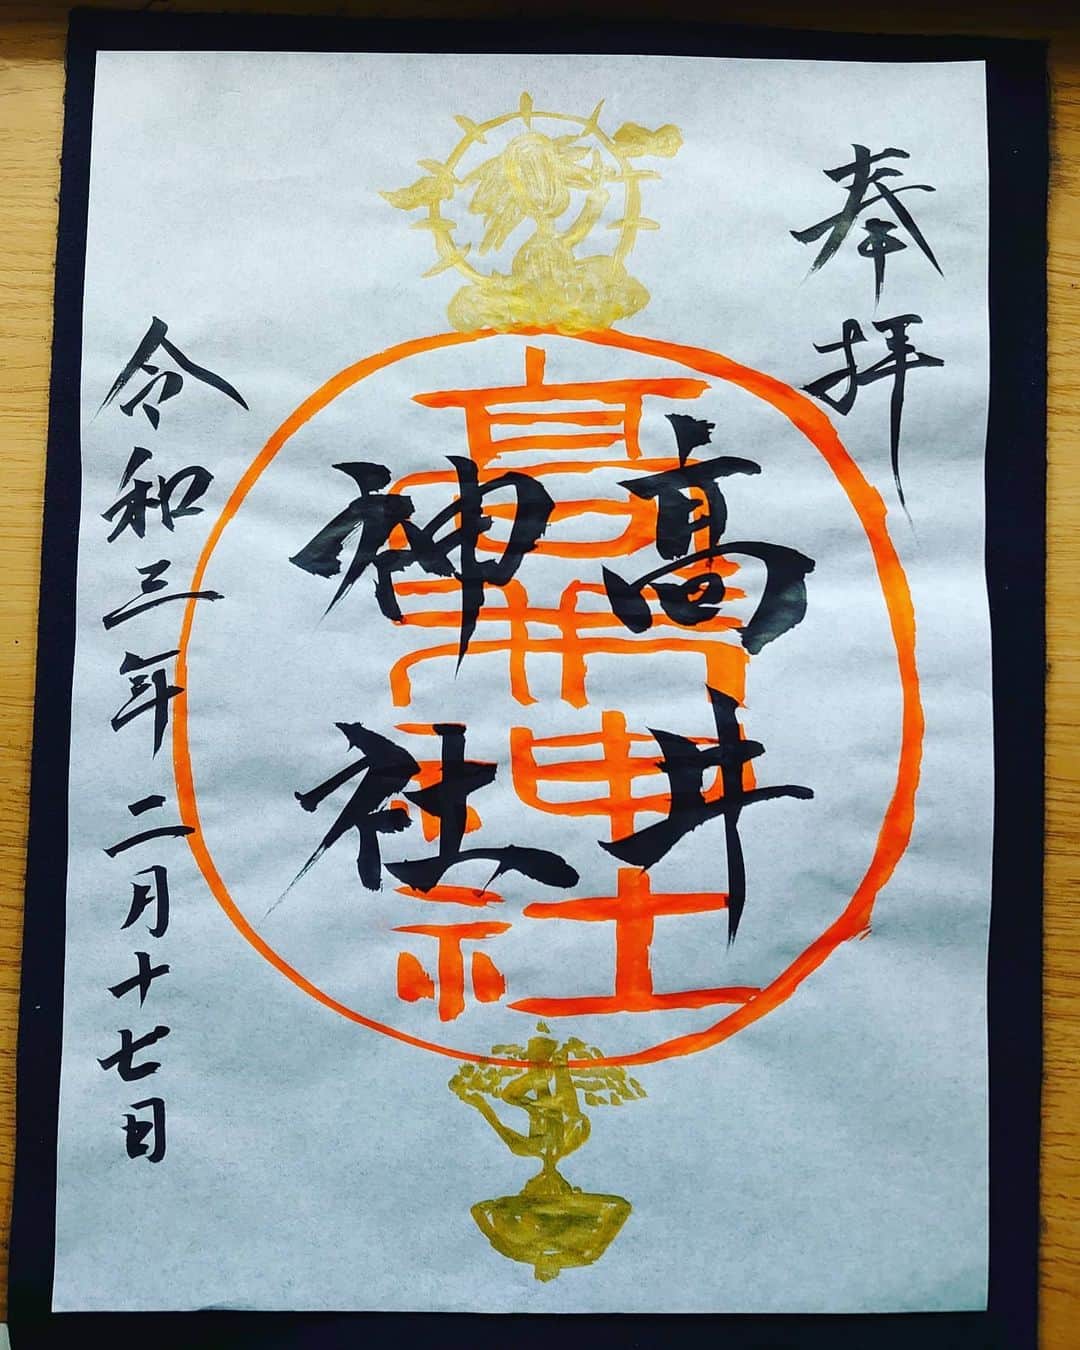 奉拝
高井
神社
高井神社
令和三年二月十七日